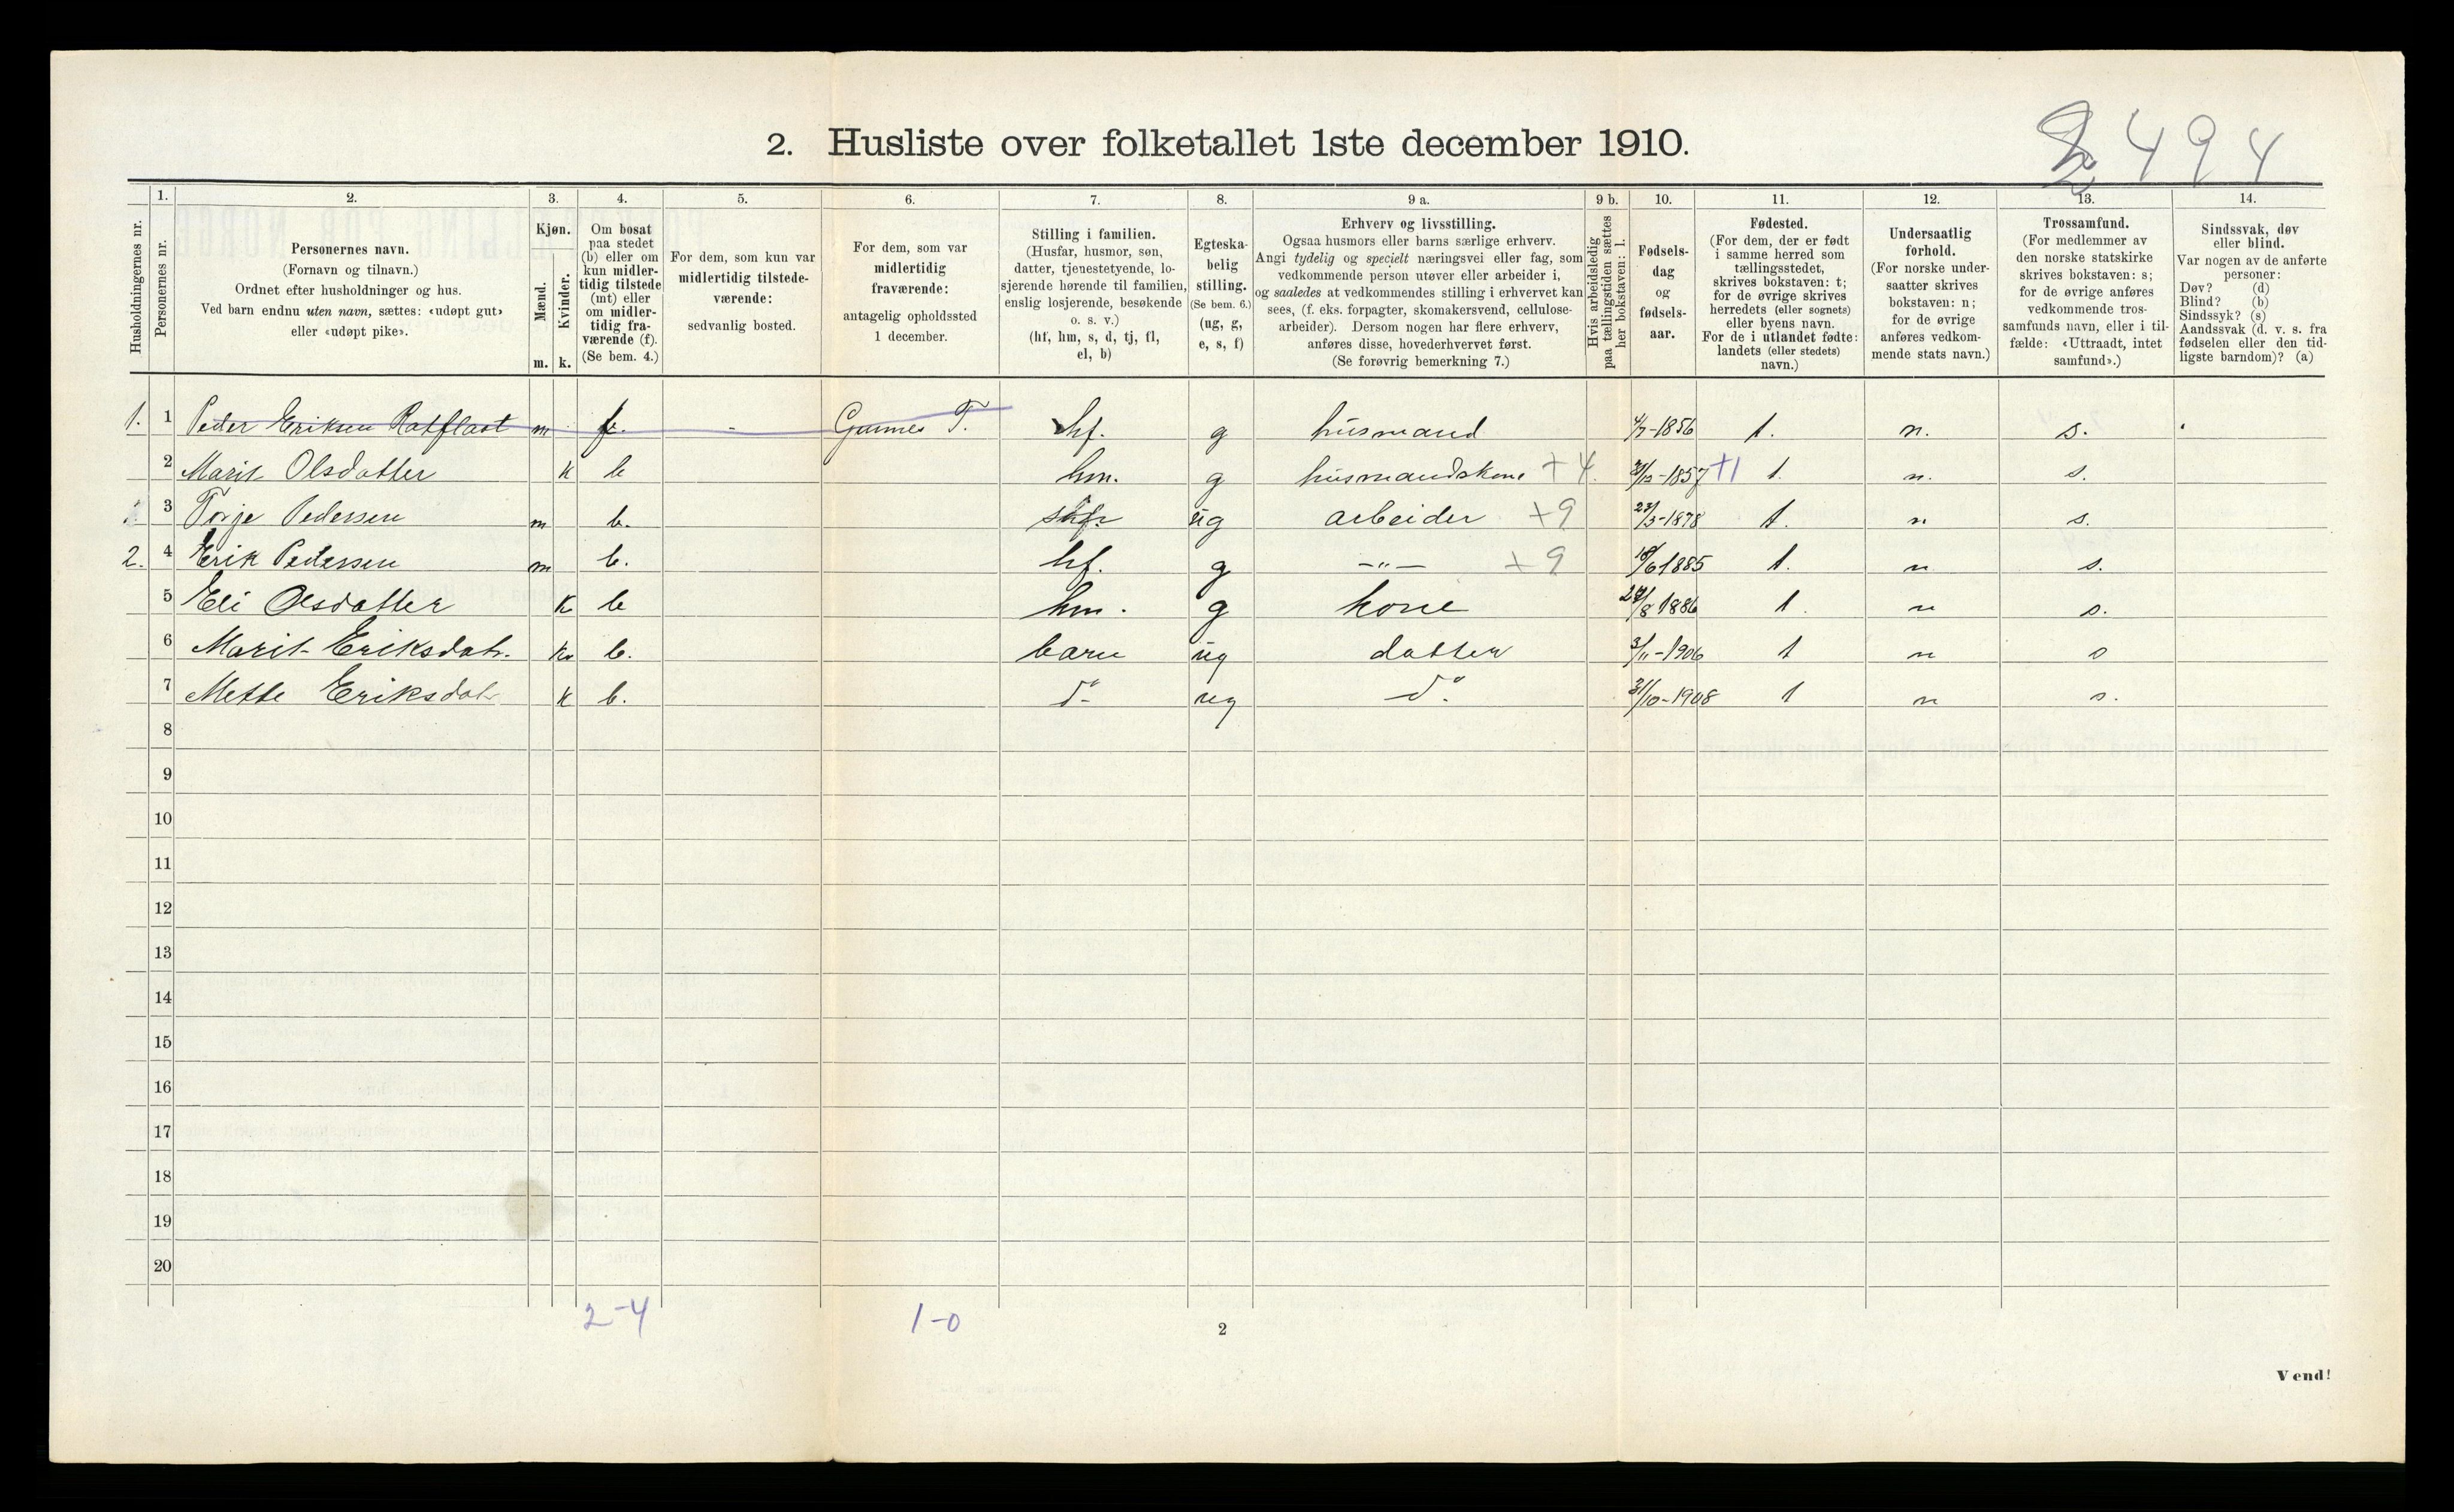 2. Husliste over folketallet 1ste december 1910.
494
Husholdningernes nr.
1. Personernes nr.
2. Personernes navn. (Fornavn og tilnavn.) Ordnet efter husholdninger og hus. Ved barn endnu uten navn, sættes: «udøpt gut» eller «udøpt pike».
3. Kjøn. Mænd. m. Kvinder. k.
4. Om bosat paa stedet (b) eller om kun midlertidig tilstede (mt) eller om midlertidig fraværende (f). (Se bem. 4.)
5. For dem, som kun var midlertidig tilstedeværende: sedvanlig bosted.
6. For dem, som var midlertidig fraværende: antagelig opholdssted 1 december.
7. Stilling i familien. (Husfar, husmor, søn, datter, tjenestetyende, losjerende hørende til familien, enslig losjerende, besøkende o. s. v.) (hf, hm, s, d, tj, fl, el, b)
8. Egteskabelig stilling. (Se bem. 6.) (ug, g, e, s, f)
9 a. Erhverv og livsstilling. Ogsaa husmors eller barns særlige erhverv. Angi tydelig og specielt næringsvei eller fag, som vedkommende person utøver eller arbeider i, og saaledes at vedkommendes stilling i erhvervet kan sees, (f. eks. forpagter, skomakersvend, cellulosearbeider). Dersom nogen har flere erhverv, anføres disse, hovederhvervet først. (Se forøvrig bemerkning 7.)
9 b. Hvis arbeidsledig paa tællingstiden sættes her bokstaven: l.
10. Fødselsdag og fødselsaar.
11. Fødested. (For dem, der er født i samme herred som tællingsstedet, skrives bokstaven: t; for de øvrige skrives herredets (eller sognets) eller byens navn. For de i utlandet fødte: landets (eller stedets) navn.)
12. Undersaatlig forhold. (For norske undersaatter skrives bokstaven: n; for de øvrige anføres vedkommende stats navn.)
13. Trossamfund. (For medlemmer av den norske statskirke skrives bokstaven: s; for de øvrige anføres vedkommende trossamfunds navn, eller i tilfælde: «Uttraadt, intet samfund».)
14. Sindssvak, døv eller blind. Var nogen av de anførte personer: Døv? (d) Blind? (b) Sindssyk? (s) Aandssvak (d. v. s. fra fødselen eller den tidligste barndom)? (a)
1. 1 Peder Eriksen m f. - T. hf. g husmand 4/7-1856 t. n. s.
2 Marit Olsdatter k b hm. g husmandskone +4 -1857 +1 t. n. s.
3 Torje Pedersen m b. ug arbeider +9 -1878 t. n s.
2. 4 Erik Pedersen m b. hf. g -"- +9 /6 1885 t. n s.
5 Eli Olsdatter k b hm. g kone /8 1886 t. n s.
6 Marit Eriksdatr. k b. barn ug datter 3/11-1906 t n s
7 Mette Eriksdatr k b. do ug do. 31/10-1908 t n s.
8
9
10
11
12
13
14
15
16
17
18
19
20
2-4 1-0
2
Vend!